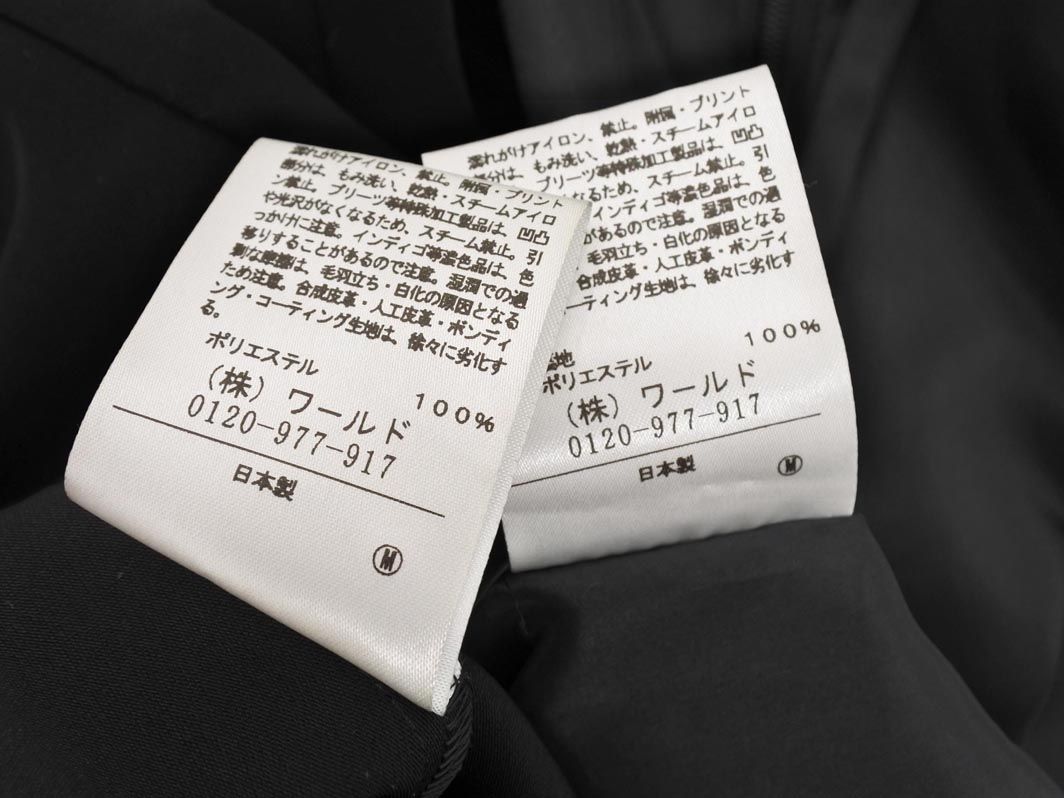 濡れがけアイロン、禁止。附属・プリント
部分は、もみ洗い、乾熱・スチームアイロ
ン禁止。プリーツ等特殊加工製品は、凹凸
や光沢がなくなるため、スチーム禁止。引
っかけに注意。インディゴ等濃色品は、色
移りすることがあるので注意。湿潤での過
剰な摩擦は、毛羽立ち・白化の原因となる
ため注意。合成皮革・人工皮革・ボンディ
ング・コーティング生地は、徐々に劣化す
る。
ポリエステル
100%
(株)ワールド
0120-977-917
日本製
M
濡れがけアイロン、禁止。附属・プリント
部分は、もみ洗い、乾熱・スチームアイロ
プリーツ等特殊加工製品は、凹凸
なるため、スチーム禁止。引
インディゴ等濃色品は、色
があるので注意。湿潤での過
毛羽立ち・白化の原因となる
合成皮革・人工皮革・ボンディ
ーティング生地は、徐々に劣化す
地
ポリエステル
100%
(株)ワールド
0120-977-917
日本製
M